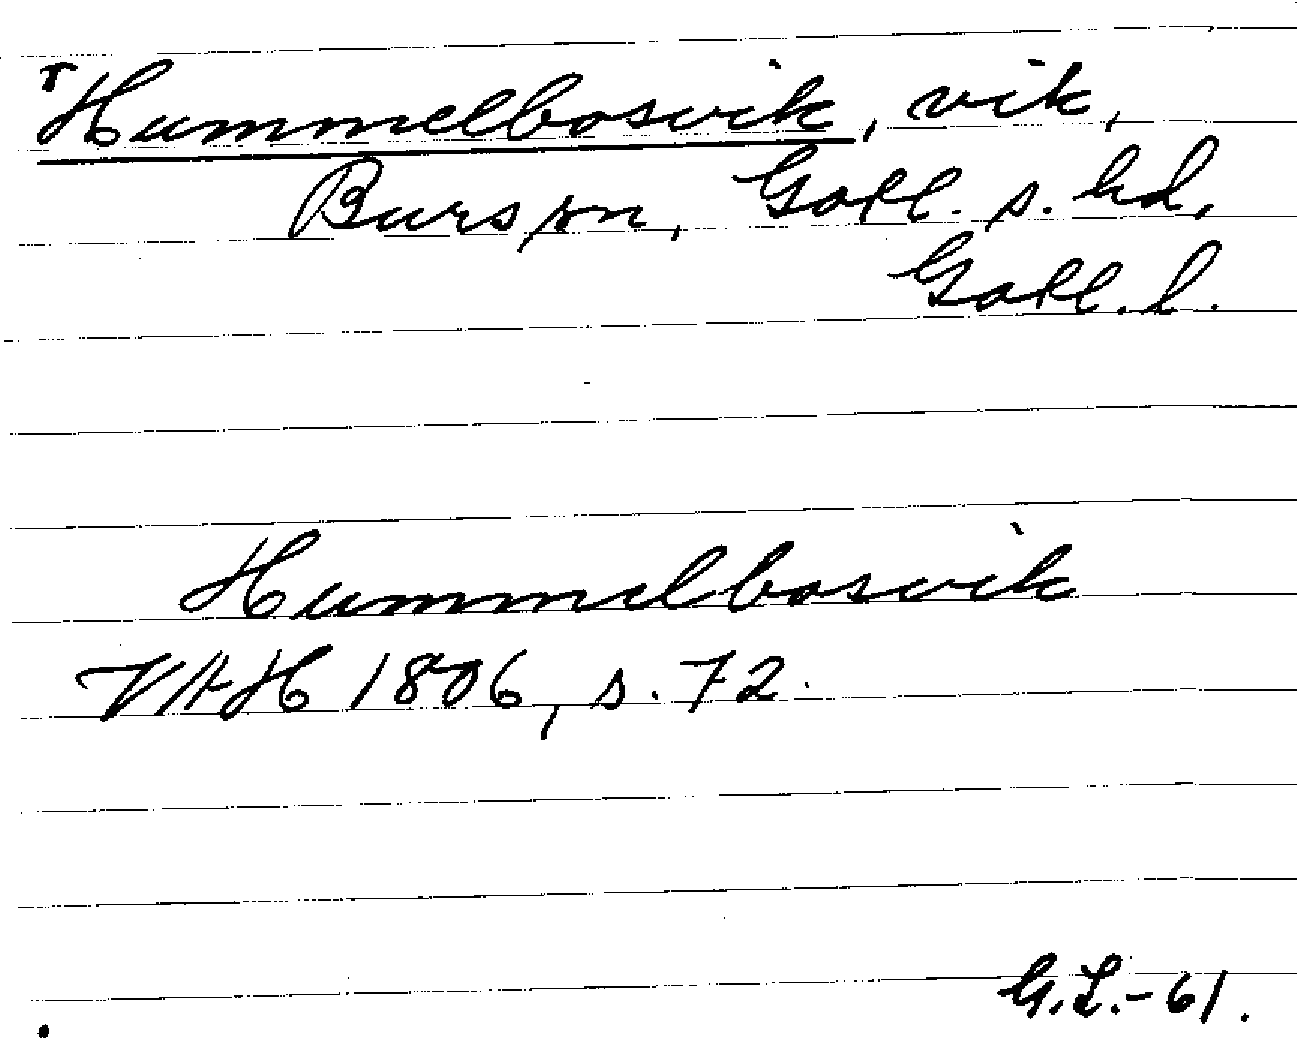 Hummelbosvik, vik,
Burs sn, Gotl. s. hd,
Gotl. l.
Hummelbosvik
VAH 1806, s. 72.
G.L.-61.